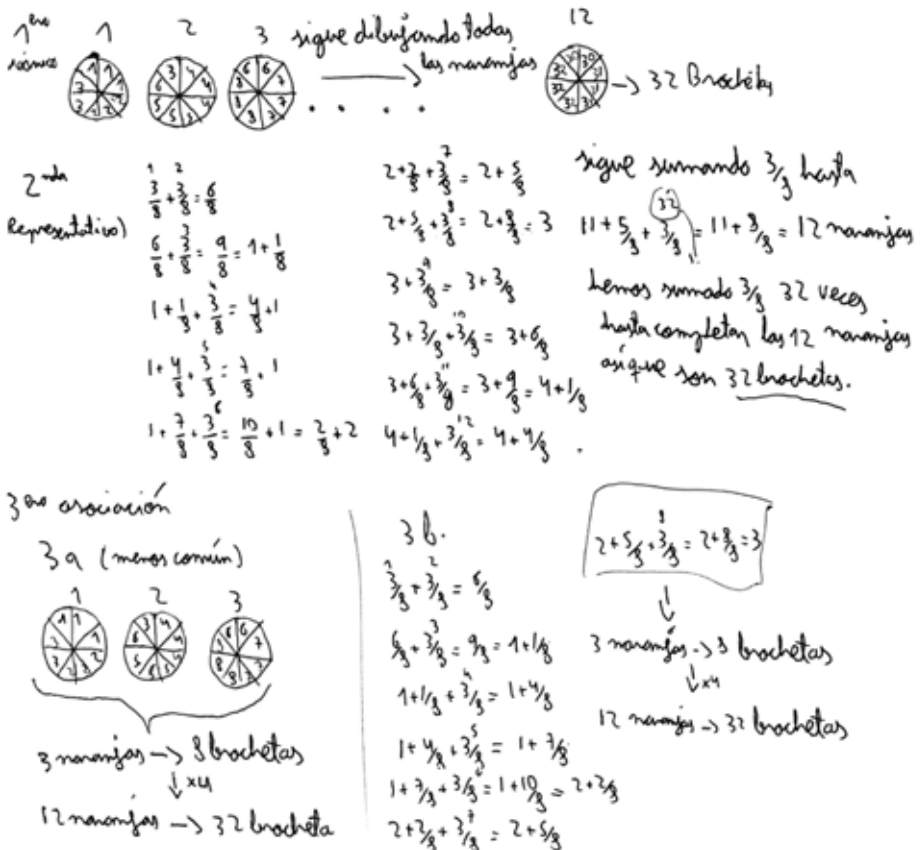 1ero
icónico
1
2
3
sigue dibujando todas
las naranjas
12
→ 32 Brochetas
2nda
Representativo)
1 2
3/8 + 3/8 = 6/8
3
6/8 + 3/8 = 9/8 = 1 + 1/8
4
1 + 1/8 + 3/8 = 4/8 + 1
5
1 + 4/8 + 3/8 = 7/8 + 1
6
1 + 7/8 + 3/8 = 10/8 + 1 = 2/8 + 2
7
2 + 2/8 + 3/8 = 2 + 5/8
8
2 + 5/8 + 3/8 = 2 + 8/8 = 3
9
3 + 3/8 = 3 + 3/8
10
3 + 3/8 + 3/8 = 3 + 6/8
11
3 + 6/8 + 3/8 = 3 + 9/8 = 4 + 1/8
12
4 + 1/8 + 3/8 = 4 + 4/8
sigue sumando 3/8 hasta
32
11 + 5/8 + 3/8 = 11 + 8/8 = 12 naranjas
hemos sumado 3/8 32 veces
hasta completar las 12 naranjas
así que son 32 brochetas.
3ero asociación
3a (menos común)
1 2 3
3 naranjas → 8 brochetas
↓ x4
12 naranjas → 32 brocheta
3b.
1 2
3/8 + 3/8 = 6/8
3
6/8 + 3/8 = 9/8 = 1 + 1/8
4
1 + 1/8 + 3/8 = 1 + 4/8
5
1 + 4/8 + 3/8 = 1 + 7/8
6
1 + 7/8 + 3/8 = 1 + 10/8 = 2 + 2/8
7
2 + 2/8 + 3/8 = 2 + 5/8
8
2 + 5/8 + 3/8 = 2 + 8/8 = 3
↓
3 naranjas → 8 brochetas
↓ x4
12 naranjas → 32 brochetas